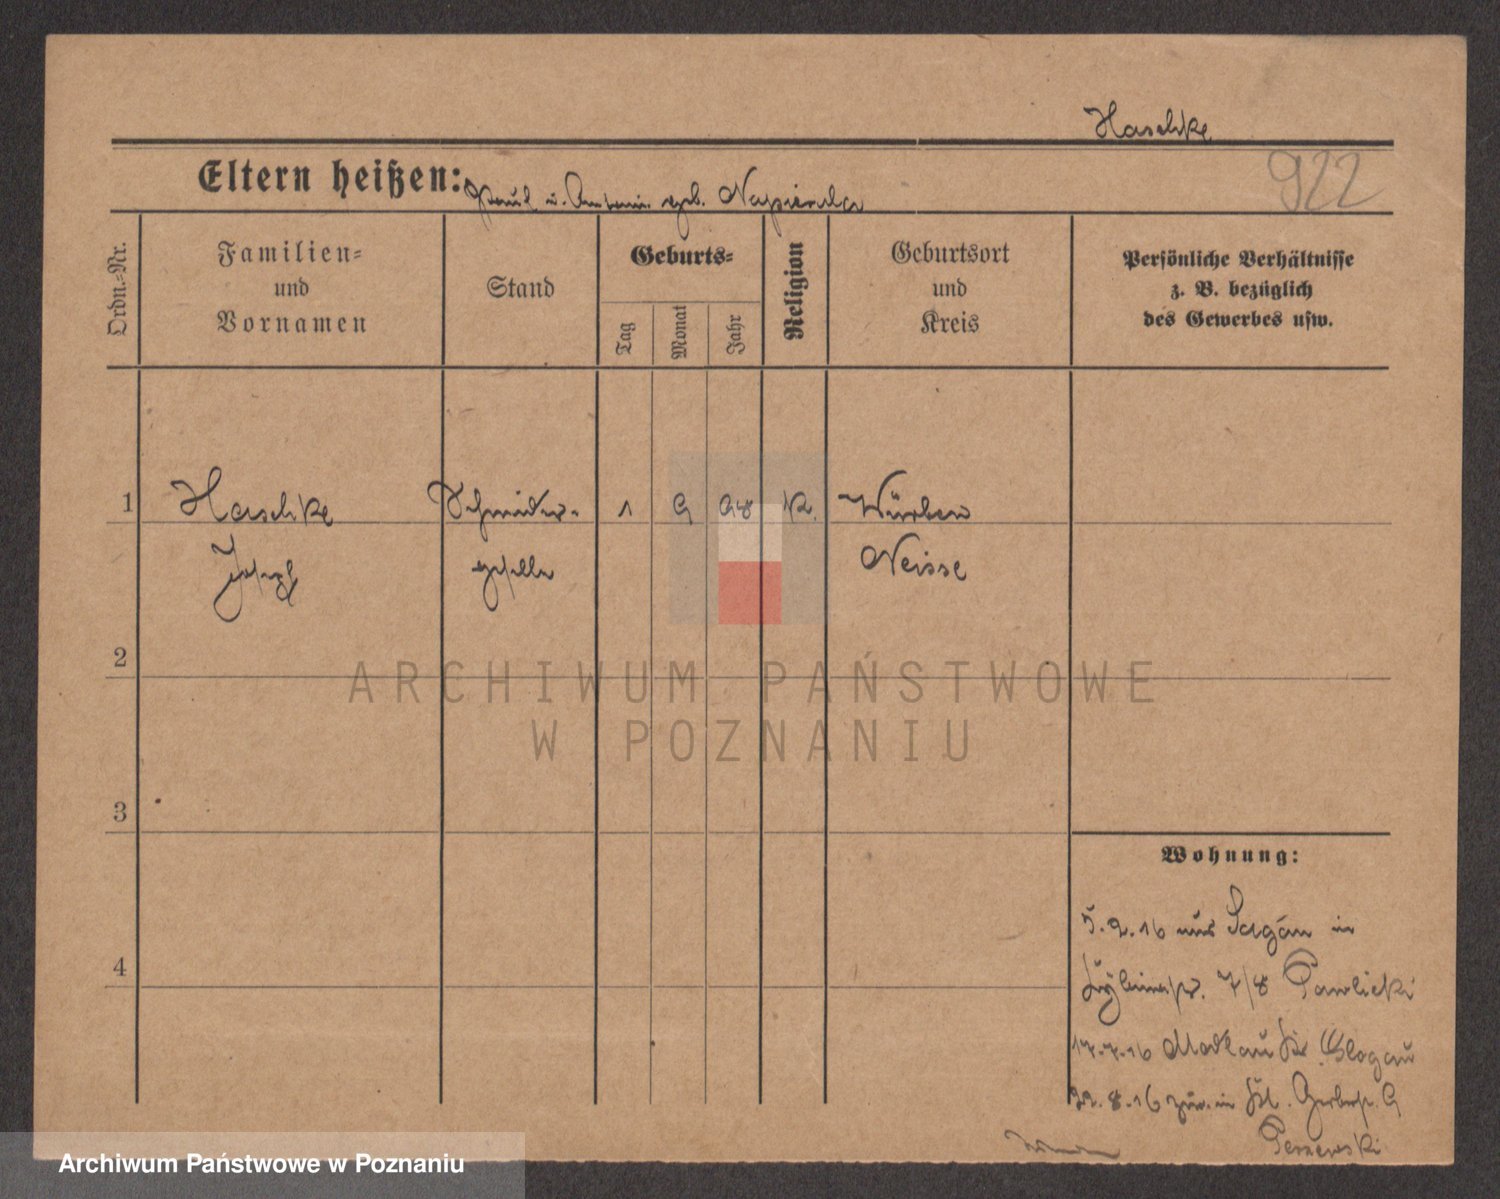 Haschke
Eltern heißen: Paul u. Antonie geb. Napierala
922
Ordn.-Nr.
Familien-
und
Vornamen
Stand
Geburts-
Tag
Monat
Jahr
Religion
Geburtsort
und
Kreis
Persönliche Verhältnisse
z. B. bezüglich
des Gewerbes usw.
1 Haschke Schneider- 1 9 98 K. Würben
Joseph geselle Neisse
2
ARCHIWUM PAŃSTWOWE
W POZNANIU
3
Wohnung:
5.2.16 aus Sagan in
7/8 Pawlicki
4
17.7.16 Modlau Kr. Glogau
22.8.16 zur. in Kl. Gerberstr. 9
Archiwum Państwowe w Poznaniu